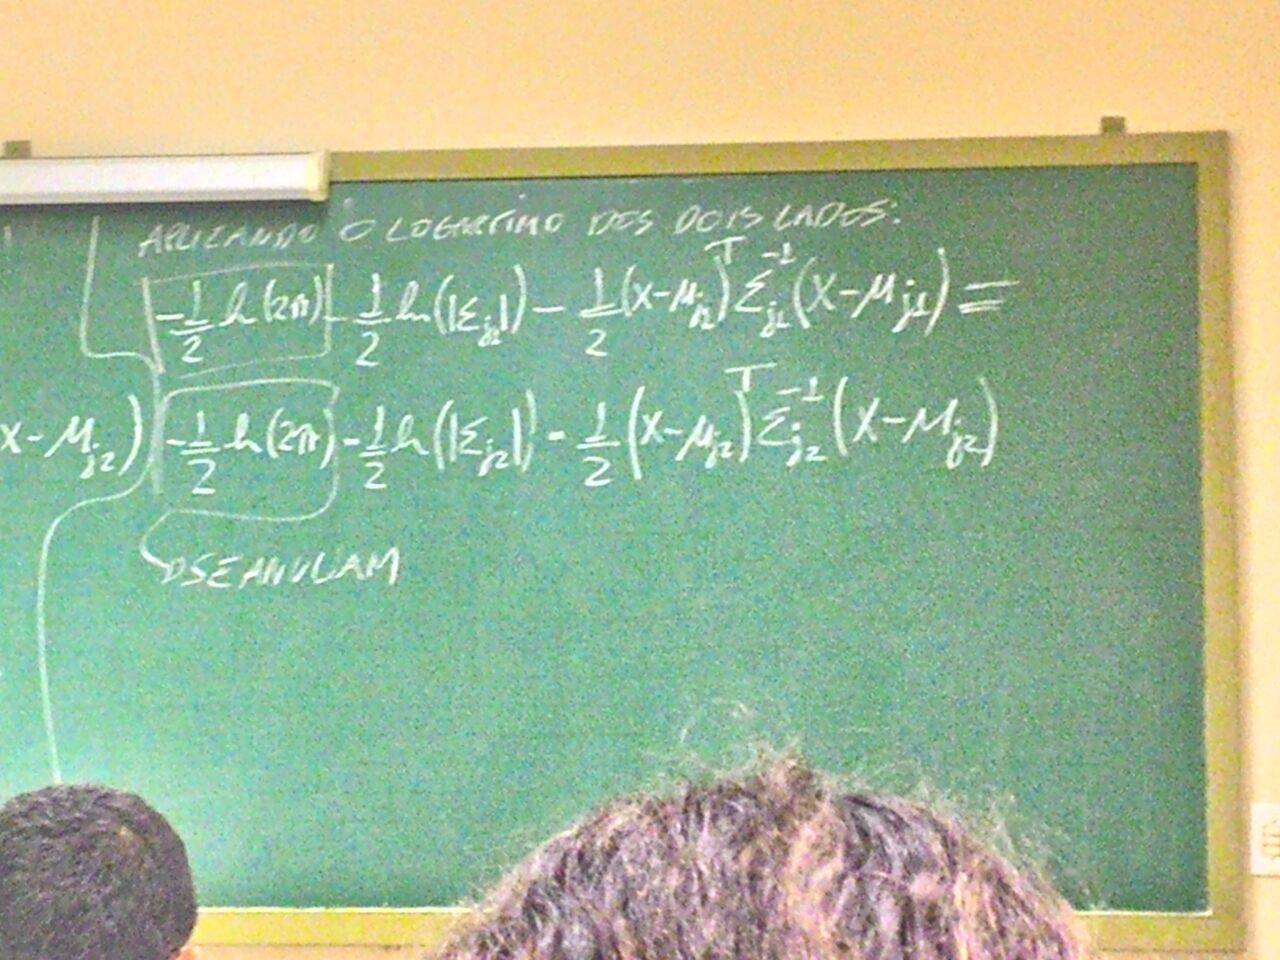 APLICANDO O LOGARITMO DOS DOIS LADOS:
-1/2 ln(2π) - 1/2 ln(|Σj1|) - 1/2 (x-μj1)^T Σj1^-1 (x-μj1) =
x-μj2) -1/2 ln(2π) - 1/2 ln(|Σj2|) - 1/2 (x-μj2)^T Σj2^-1 (x-μj2)
SE ANULAM